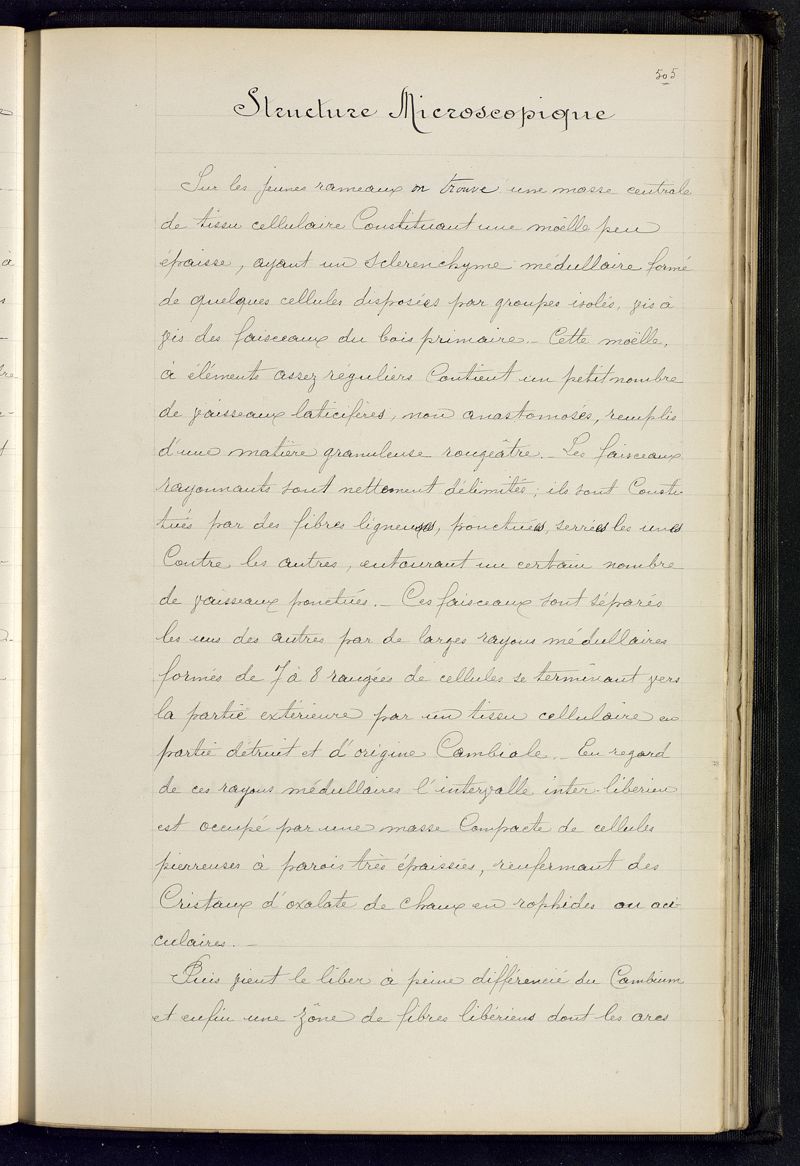 505
Structure Microscopique
Sur les jeunes rameaux on trouve une masse centrale
de tissu cellulaire Constituant une moëlle peu
épaisse, ayant un sclerenchyme médullaire formé
de quelques cellules disposées par groupes isolés, vis à
vis des faisceaux du bois primaire. – Cette moëlle,
à éléments assez reguliers Contient un petit nombre
de vaisseaux laticifères, non anastomosés, remplis
d'une matière granuleuse rougeâtre. – Les faisceaux
rayonnants sont nettement délimités; ils sont Consti
tués par des fibres ligneuses, ponctuées, serrées les unes
Contre les autres, entourant un certain nombre
de vaisseaux ponctués. – Ces faisceaux sont séparés
les uns des autres par de larges rayons médullaires
formés de 7 à 8 rangées de cellules se terminant vers
la partie extérieure par un tissu cellulaire en
partie détruit et d'origine Cambiale. – En regard
de ces rayons médullaires l'intervalle inter-libérien
est occupé par une masse Compacte de cellules
pierreuses à parois très épaissies, renfermant des
Cristaux d'oxalate de chaux en rophides ou aci-
culaires. –
Puis vient le liber à peine différencié du Cambium
et enfin une zône de fibres libériens dont les arcs